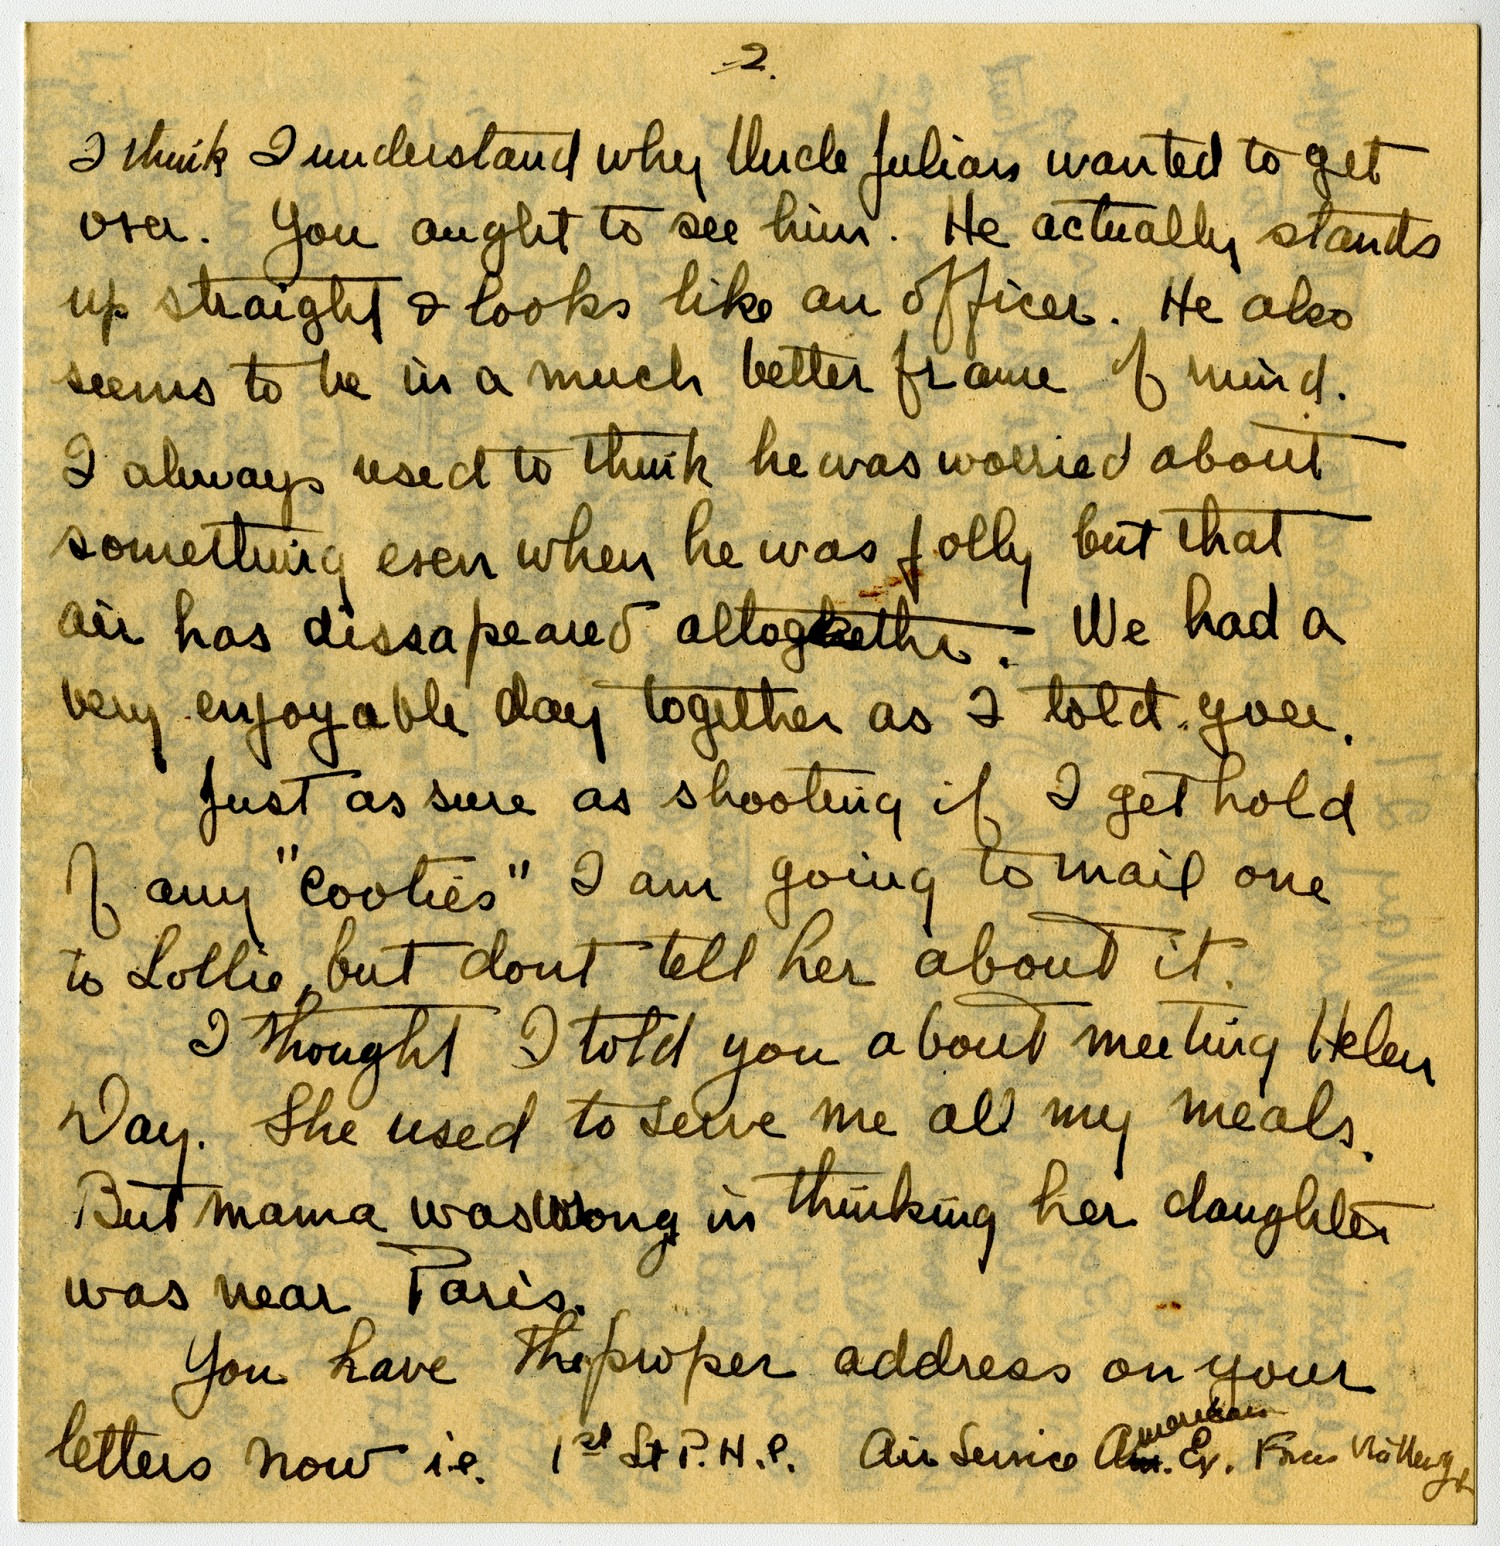 2.
I think I understand why Uncle Julian wanted to get
over. You aught to see him. He actually stands
up straight & looks like an officer. He also
seems to be in a much better frame of mind.
I always used to think he was worried about
something even when he was jolly but that
air has dissapeared altogether. We had a
very enjoyable day together as I told you.
Just as sure as shooting if I get hold
of any "cooties" I am going to mail one
to Lollie, but dont tell her about it.
I thought I told you about meeting Helen
Day. She used to serve me all my meals.
But mama was wrong in thinking her daughter
was near Paris.
You have the proper address on your
letters now i.e. 1st Lt P.H.P. Air Service American Ex. Forces Via New York